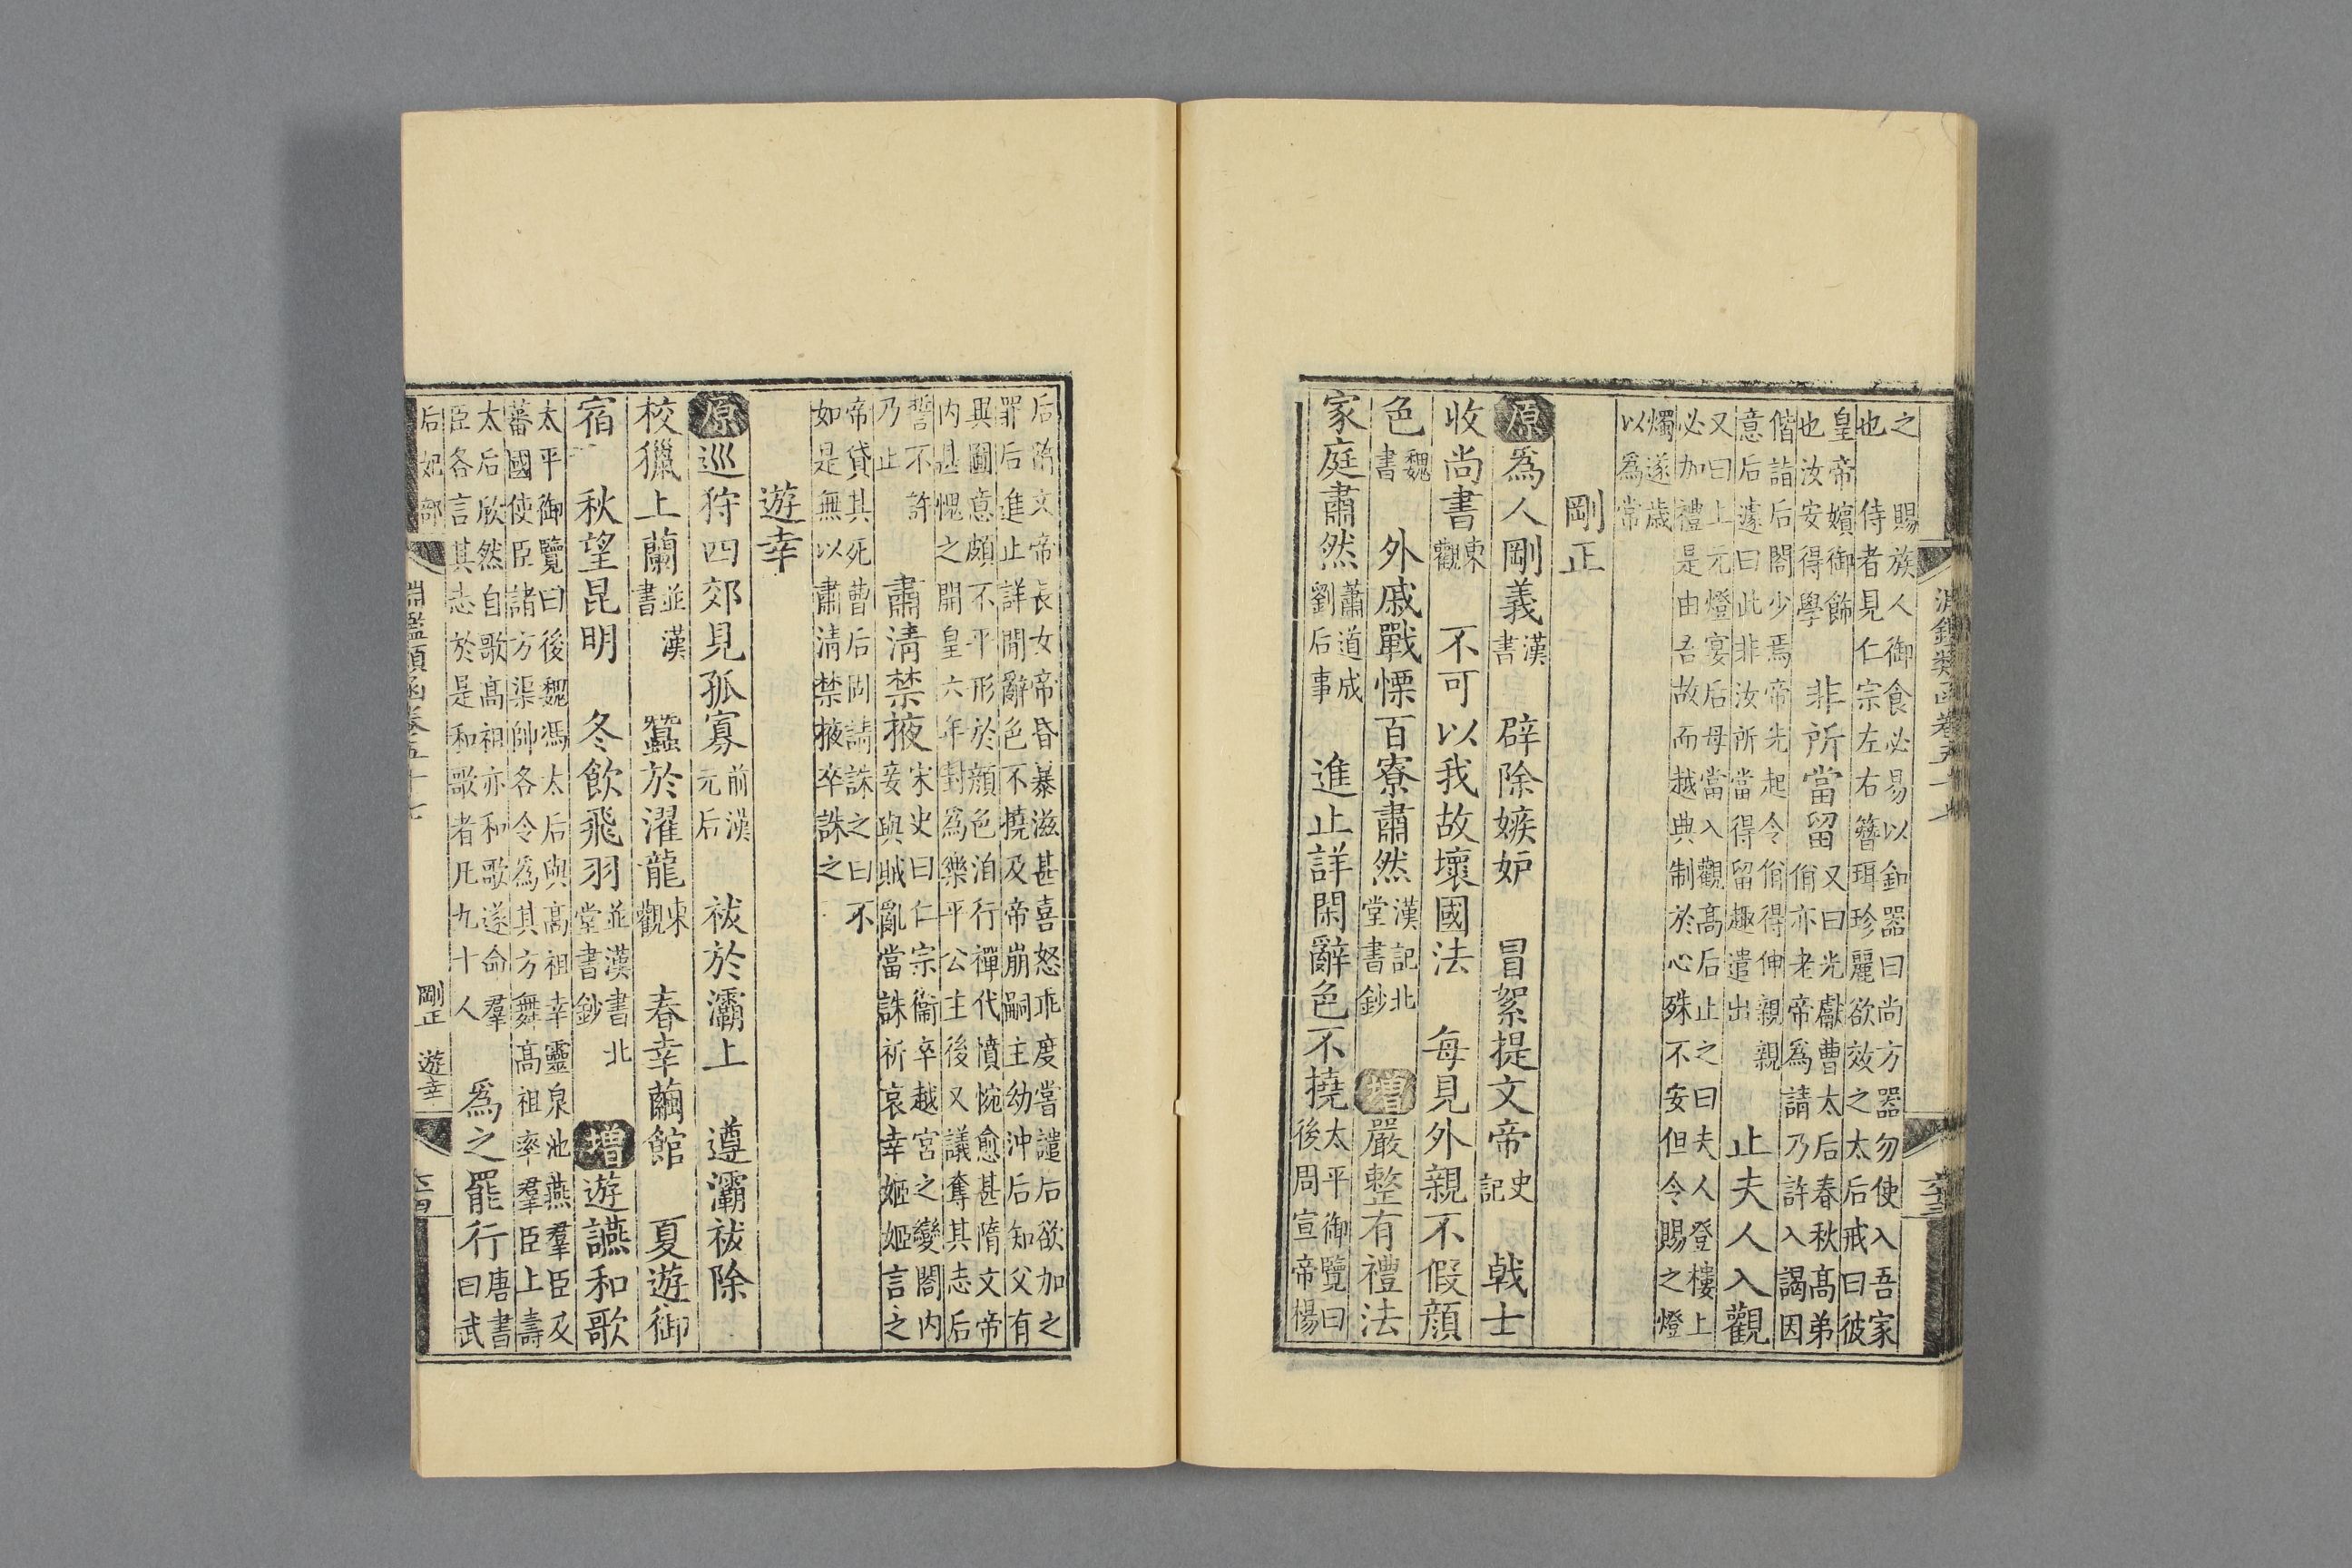 淵鑑類函卷五十七
之　賜族人御食必易以釦器曰尚方器勿使入吾家
也　侍者見仁宗左右簪珥珍麗欲效之太后戒曰彼
皇帝嬪御飾
也汝安得學
非所當留
又曰光獻曹太后春秋高弟
佾亦老帝爲請乃許入謁因
偕詣后閤少焉帝先起令佾得伸親親
意后遽曰此非汝所當得留趣遣出
止夫人入觀
又曰上元燈宴后母當入觀高后止之曰夫人登樓上
必加禮是由吾故而越典制於心殊不安但令賜之燈
燭遂歲
以爲常
剛正
原爲人剛義漢書　辟除嫉妒　冒絮提文帝史記　戟士
收尚書東觀　不可以我故壞國法　每見外親不假顏
色魏書　外戚戰慄百寮肅然漢記北堂書鈔　增嚴整有禮法
家庭肅然蕭道成劉后事　進止詳閑辭色不撓太平御覽曰後周宣帝楊
后隋文帝長女帝昏暴滋甚喜怒乖度嘗譴后欲加之
罪后進止詳閒辭色不撓及帝崩嗣主幼沖后知父有
異圖意頗不平形於顏色洎行禪代憤惋愈甚隋文帝
內甚愧之開皇六年封爲樂平公主後又議奪其志后
誓不許
乃止
肅清禁掖
宋史曰仁宗衞卒越宮之變閤內
妾與賊亂當誅祈哀幸姬姬言之
帝貸其死曹后固請誅之曰不
如是無以肅清禁掖卒誅之
遊幸
原巡狩四郊見孤寡前漢元后　祓於灞上　遵灞祓除
校獵上蘭並漢書　蠶於濯龍東觀　春幸繭館　夏遊御
宿　秋望昆明　冬飲飛羽並漢書北堂書鈔　增遊讌和歌
太平御覽曰後魏馮太后與高祖幸靈泉池燕羣臣及
蕃國使臣諸方渠帥各令爲其方舞高祖率羣臣上壽
太后欣然自歌高祖亦和歌遂命羣
臣各言其志於是和歌者凡九十人
爲之罷行唐書曰武
后妃部
淵鑑類函卷五十七
剛正　遊幸